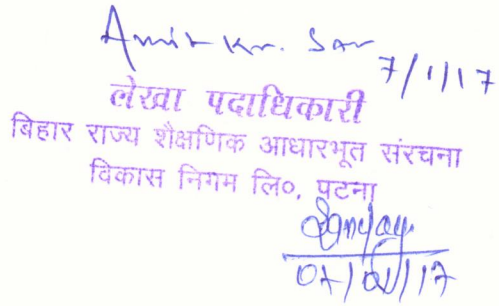 Amit Kr. Sav
7/1/17
लेखा पदाधिकारी
बिहार राज्य शैक्षणिक आधारभूत संरचना
विकास निगम लि०, पटना
Sanjay
07/01/17